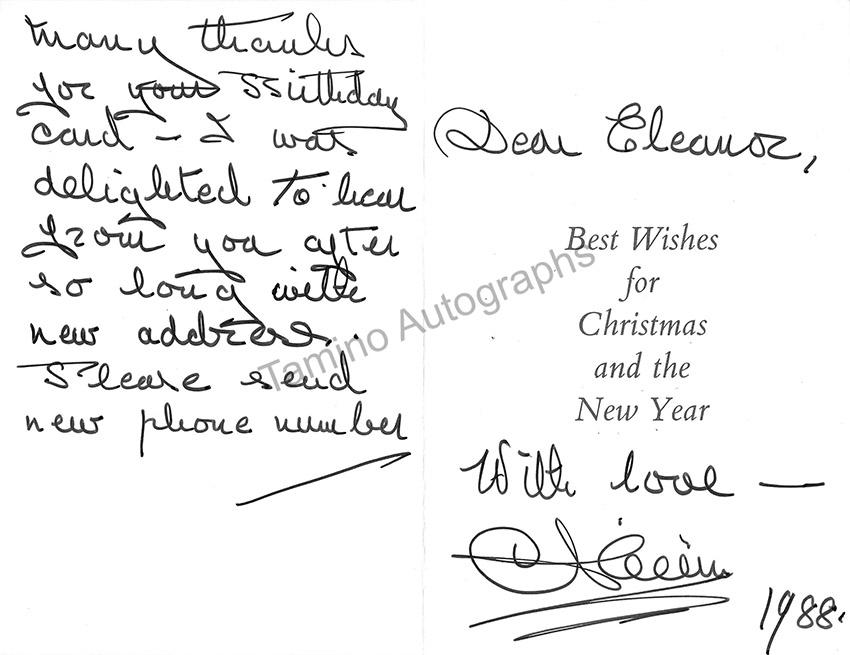 many thanks
for your Birthday
card – I was
delighted to hear
from you after
so long with
new address.
Please send
new phone number
Dear Eleanor,
Best Wishes
for
Christmas
and the
New Year
With love —
1988.
Tamino Autographs